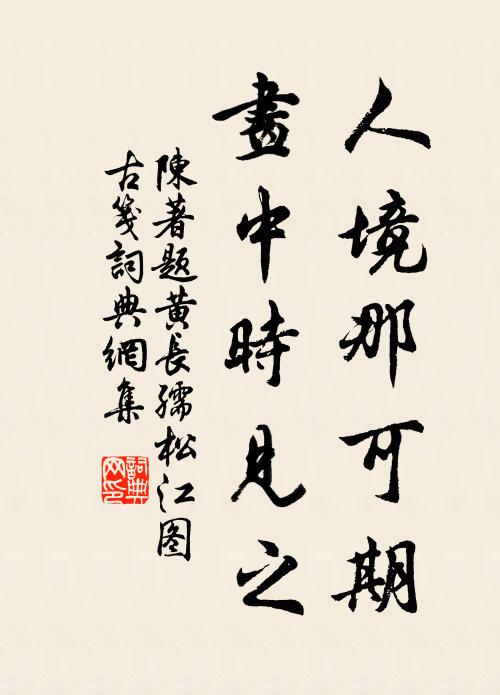 人境那可期
畫中時見之
陳著題黄長孺松江图
古箋詞典網集
詞典网印